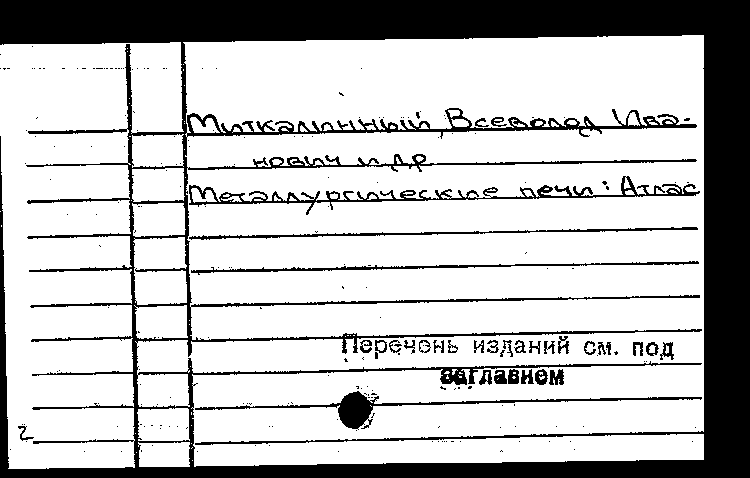 Миткалинный, Всеволод Ива-
нович и др
Металлургические печи: Атлас
Перечень изданий см. под
заглавием
2